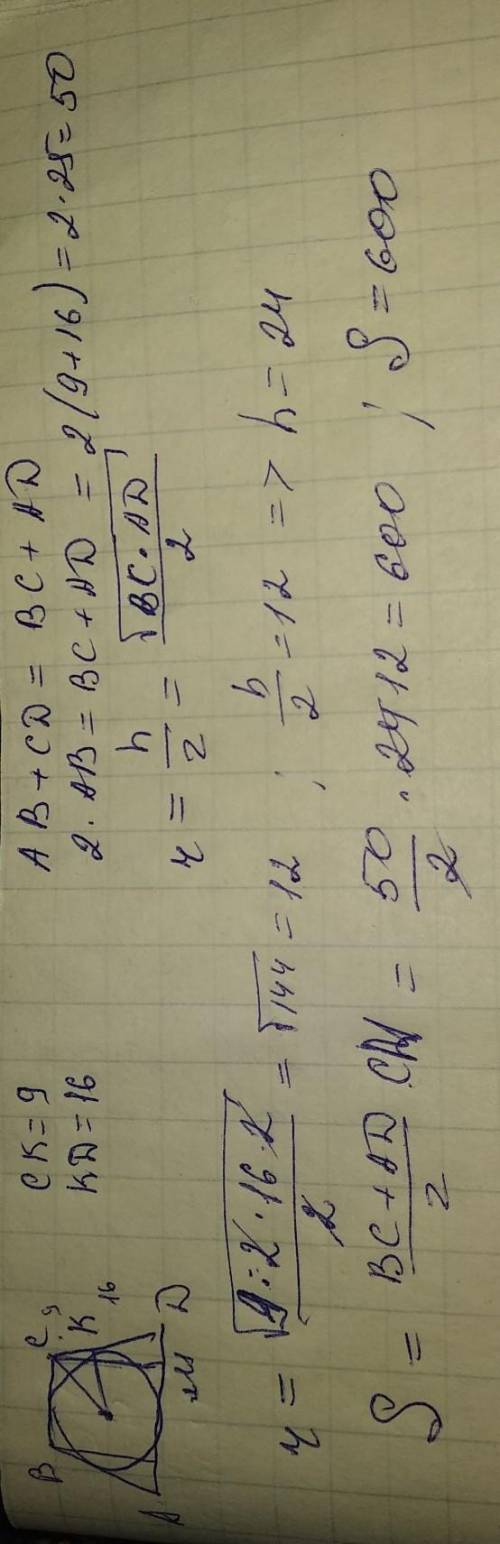 B C 9 K 16 A M D
CK = 9
KD = 16
AB + CD = BC + AD
2 · AB = BC + AD = 2(9+16) = 2·25 = 50
r = h/2 = √BC·AD/2
r = √9·2·16·2/2 = √144 = 12 ; h/2 = 12 => h = 24
S = BC + AD/2 · CM = 50/2 · 24 12 = 600 ; S = 600